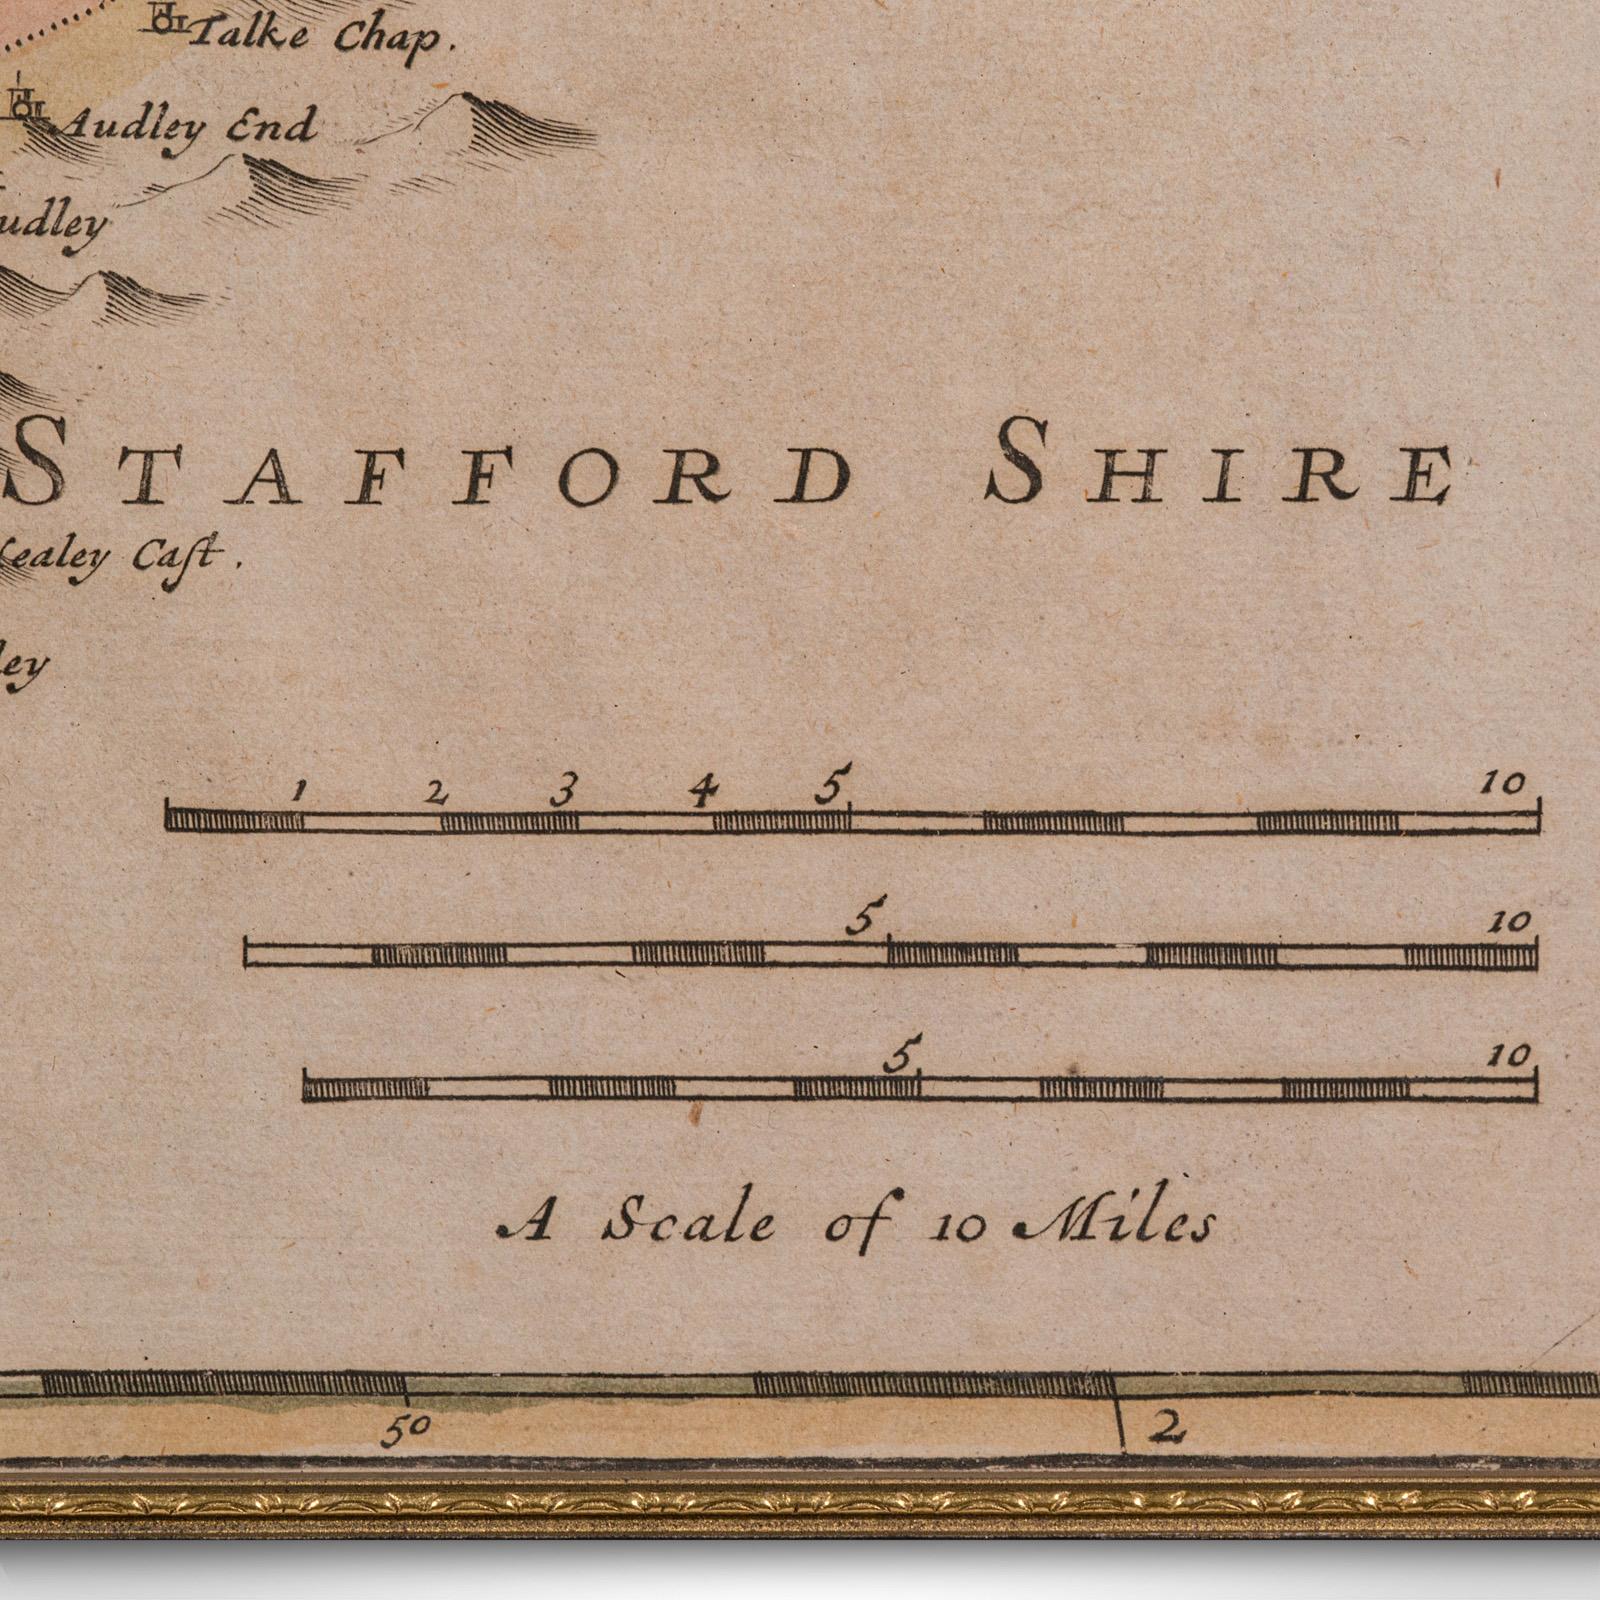 Talke Chap.
Audley End
udley
STAFFORD SHIRE
ealey Caſt.
ley
1 2 3 4 5 10
5 10
5 10
A Scale of 10 Miles
50 2